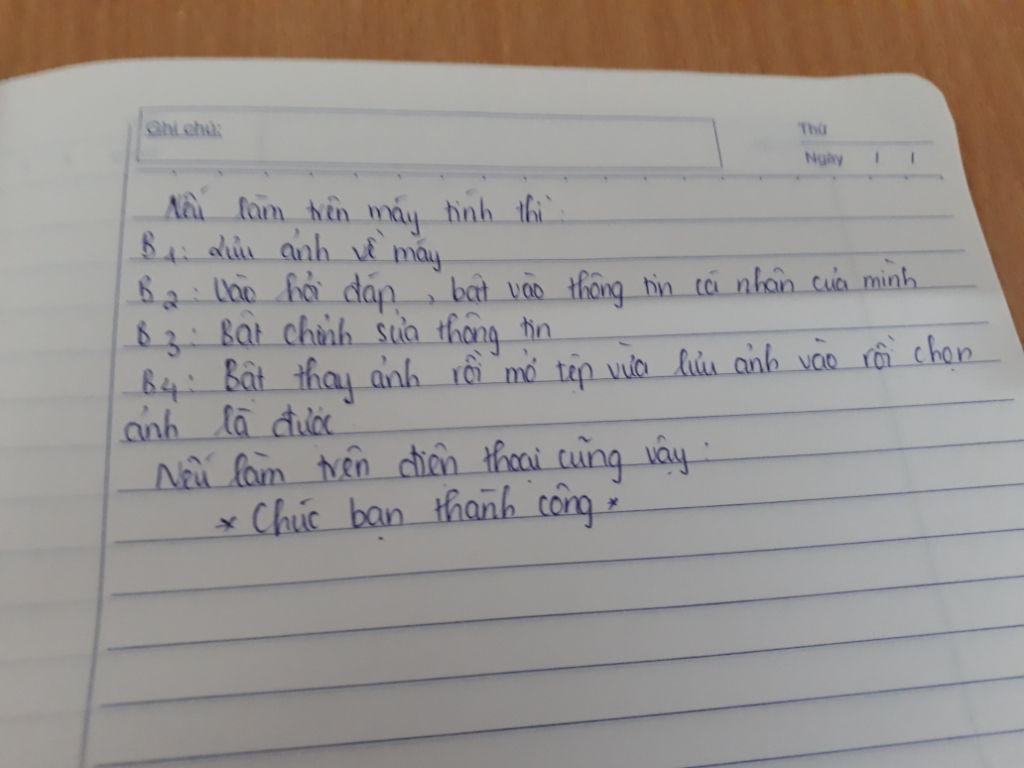 Ghi chú:
Thứ
Ngày / /
Nếu làm trên máy tính thì:
B1: Lưu ảnh về máy
B2: Vào hỏi đáp, bật vào thông tin cá nhân của mình
B3: Bật chỉnh sửa thông tin
B4: Bật thay ảnh rồi mở tệp vừa lưu ảnh vào rồi chọn
ảnh là được
Nếu làm trên điện thoại cũng vậy:
* Chúc bạn thành công *